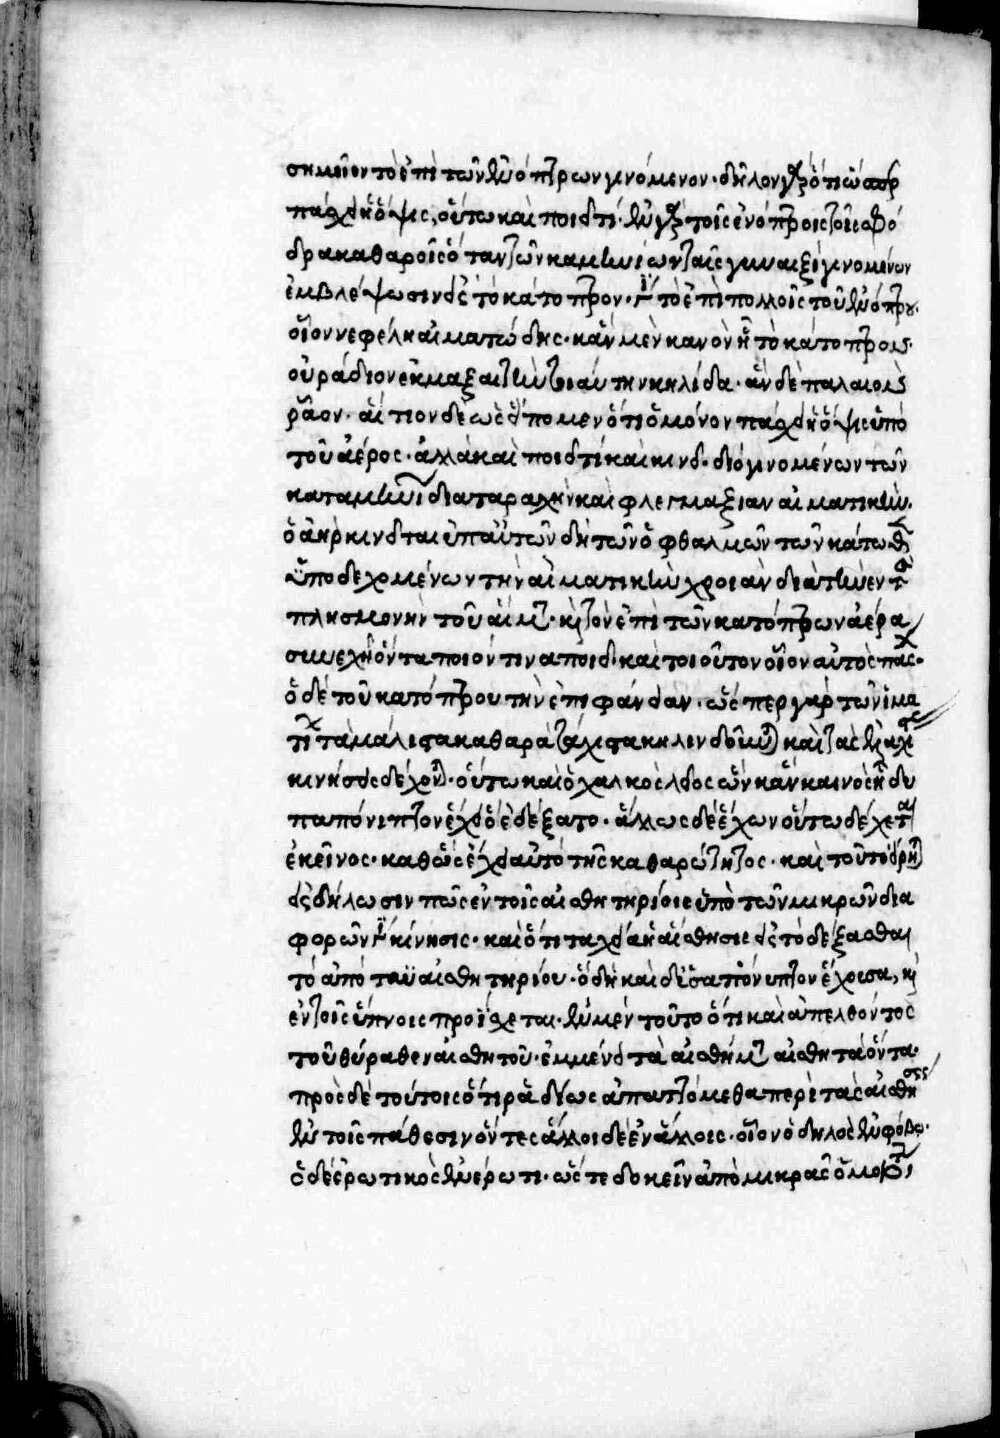 σημεῖον τὸ ἐπὶ τῶν ἐνόπτρων γινόμενον· δῆλον γὰρ ὅτι ὥσπερ
πάσχει ἡ ὄψις, οὕτω καὶ ποιεῖ τί· ἐν γὰρ τοῖς ἐνόπτροις τοῖς σφό
δρα καθαροῖς ὅταν τῶν καμηνίων ταῖς γυναιξὶ γινομένων
ἐμβλέψωσιν εἰς τὸ κάτοπτρον· γί(νεται) τὸ ἐπιπολλοῖς τοῦ ἐνόπτρου·
οἷον νεφέλη αἱματώδης· κἂν μὲν καινὸν ἦ τὸ κάτοπτρον·
οὐ ῥάδιον ἐκμάξαι τὴν τοιαύτην κηλίδα· ἂν δὲ παλαιὸν
ῥᾶον· αἴτιον δὲ ὡς εἴπομεν ὅτι οὐ μόνον πάσχει ἡ ὄψις ὑπὸ
τοῦ ἀέρος· ἀλλὰ καὶ ποιεῖ τί καὶ κινεῖ· διὸ γινομένων τῶν
καταμηνί διαταραχὴν καὶ φλεγμαξίαν αἱματικὴν·
ὁ ἀὴρ κινεῖται ὑπ αὐτῶν δὴ τῶν ὀφθαλμῶν τῶν κάτωθεν
ὑποδεχομένων τὴν αἱματικὴν χροιὰν διὰ τὴν ἐν τ
πλησμονὴν τοῦ αἵμ(ατος)· κ(αὶ) τὸν ἐπὶ τῶν κατόπτρων ἀέρα
συνεχῆ ὄντα ποιόν τινα ποιεῖ· καὶ τοιοῦτον οἷον αὐτὸς πάσχ·
ὁ δὲ τοῦ κατόπτρου τὴν ἐπιφάνειαν· ὥσπερ γὰρ τῶν ἱμα
τί(ων) τὰ μάλιστα καθαρὰ τάχιστα κηλιδοῦν(ται) καὶ τὰς
κινήσεις δέχον(ται)· οὕτω καὶ ὁ χαλκὸς λεῖος ὢν κἂν καινὸς ἦ
ἔχει ὃ ἐδέξατο· ἄλλως δὲ ἔχων οὕτω δέχεται
ἐκεῖνος· καθὼς ἔχει αὐτὸ τῆς καθαρώτητος· καὶ τοῦτο εἴρη(ται)
εἰς δήλωσιν πῶς ἐν τοῖς αἰσθητηρίοις ὑπὸ τῶν μικρῶν δια
φορῶν γί(νεται) κίνησις· καὶ ὅτι ταχεῖα ἡ αἴσθησις εἰς τὸ δέξασθαι
τὸ ἀπὸ τοῦ αἰσθητηρίου· ὃ δὴ καὶ ἔχουσα, κ(αὶ)
ἐν τοῖς ὕπνοις προΐσχεται· ἐν μὲν τοῦτο ὅτι καὶ ἀπελθόντος
τοῦ θύραθεν αἰσθητοῦ· ἐμμένει τὰ αἰσθήμ(ατα) αἰσθητὰ ὄντα·
πρὸς δὲ τούτοις ὅτι ῥᾳδίως ἀπατώμεθα περὶ τὰς αἰσθήσεις
ἐν τοῖς πάθεσιν ὄντες ἄλλοι δὲ ἐν ἄλλοις· οἷον ὁ δηλὸς ἐν φόβῳ·
ὁ δὲ ἐρωτικὸς ἐν ἔρωτι· ὥστε δοκεῖν ἀπὸ μικρᾶς ὁμοιότη